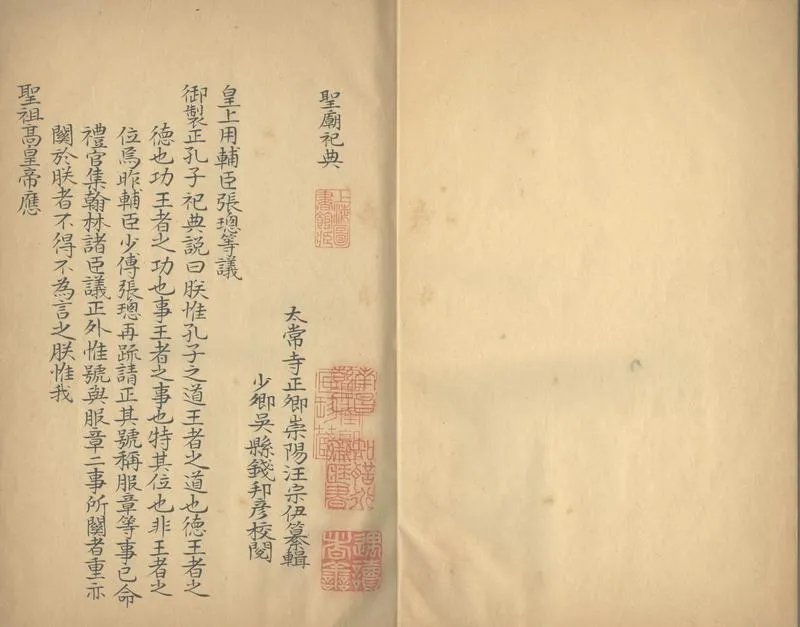 聖廟祀典
上海圖書館藏
太常寺正卿崇陽汪宗伊纂輯
少卿吳縣錢邦彥校閱
皇上用輔臣張璁等議
御製正孔子祀典説曰朕惟孔子之道王者之道也德王者之
德也功王者之功也事王者之事也特其位也非王者之
位焉昨輔臣少傅張璁再䟽請正其號稱服章等事已命
禮官集翰林諸臣議正外惟號與服章二事所關者重亦
關於朕者不得不為言之朕惟我
聖祖高皇帝應